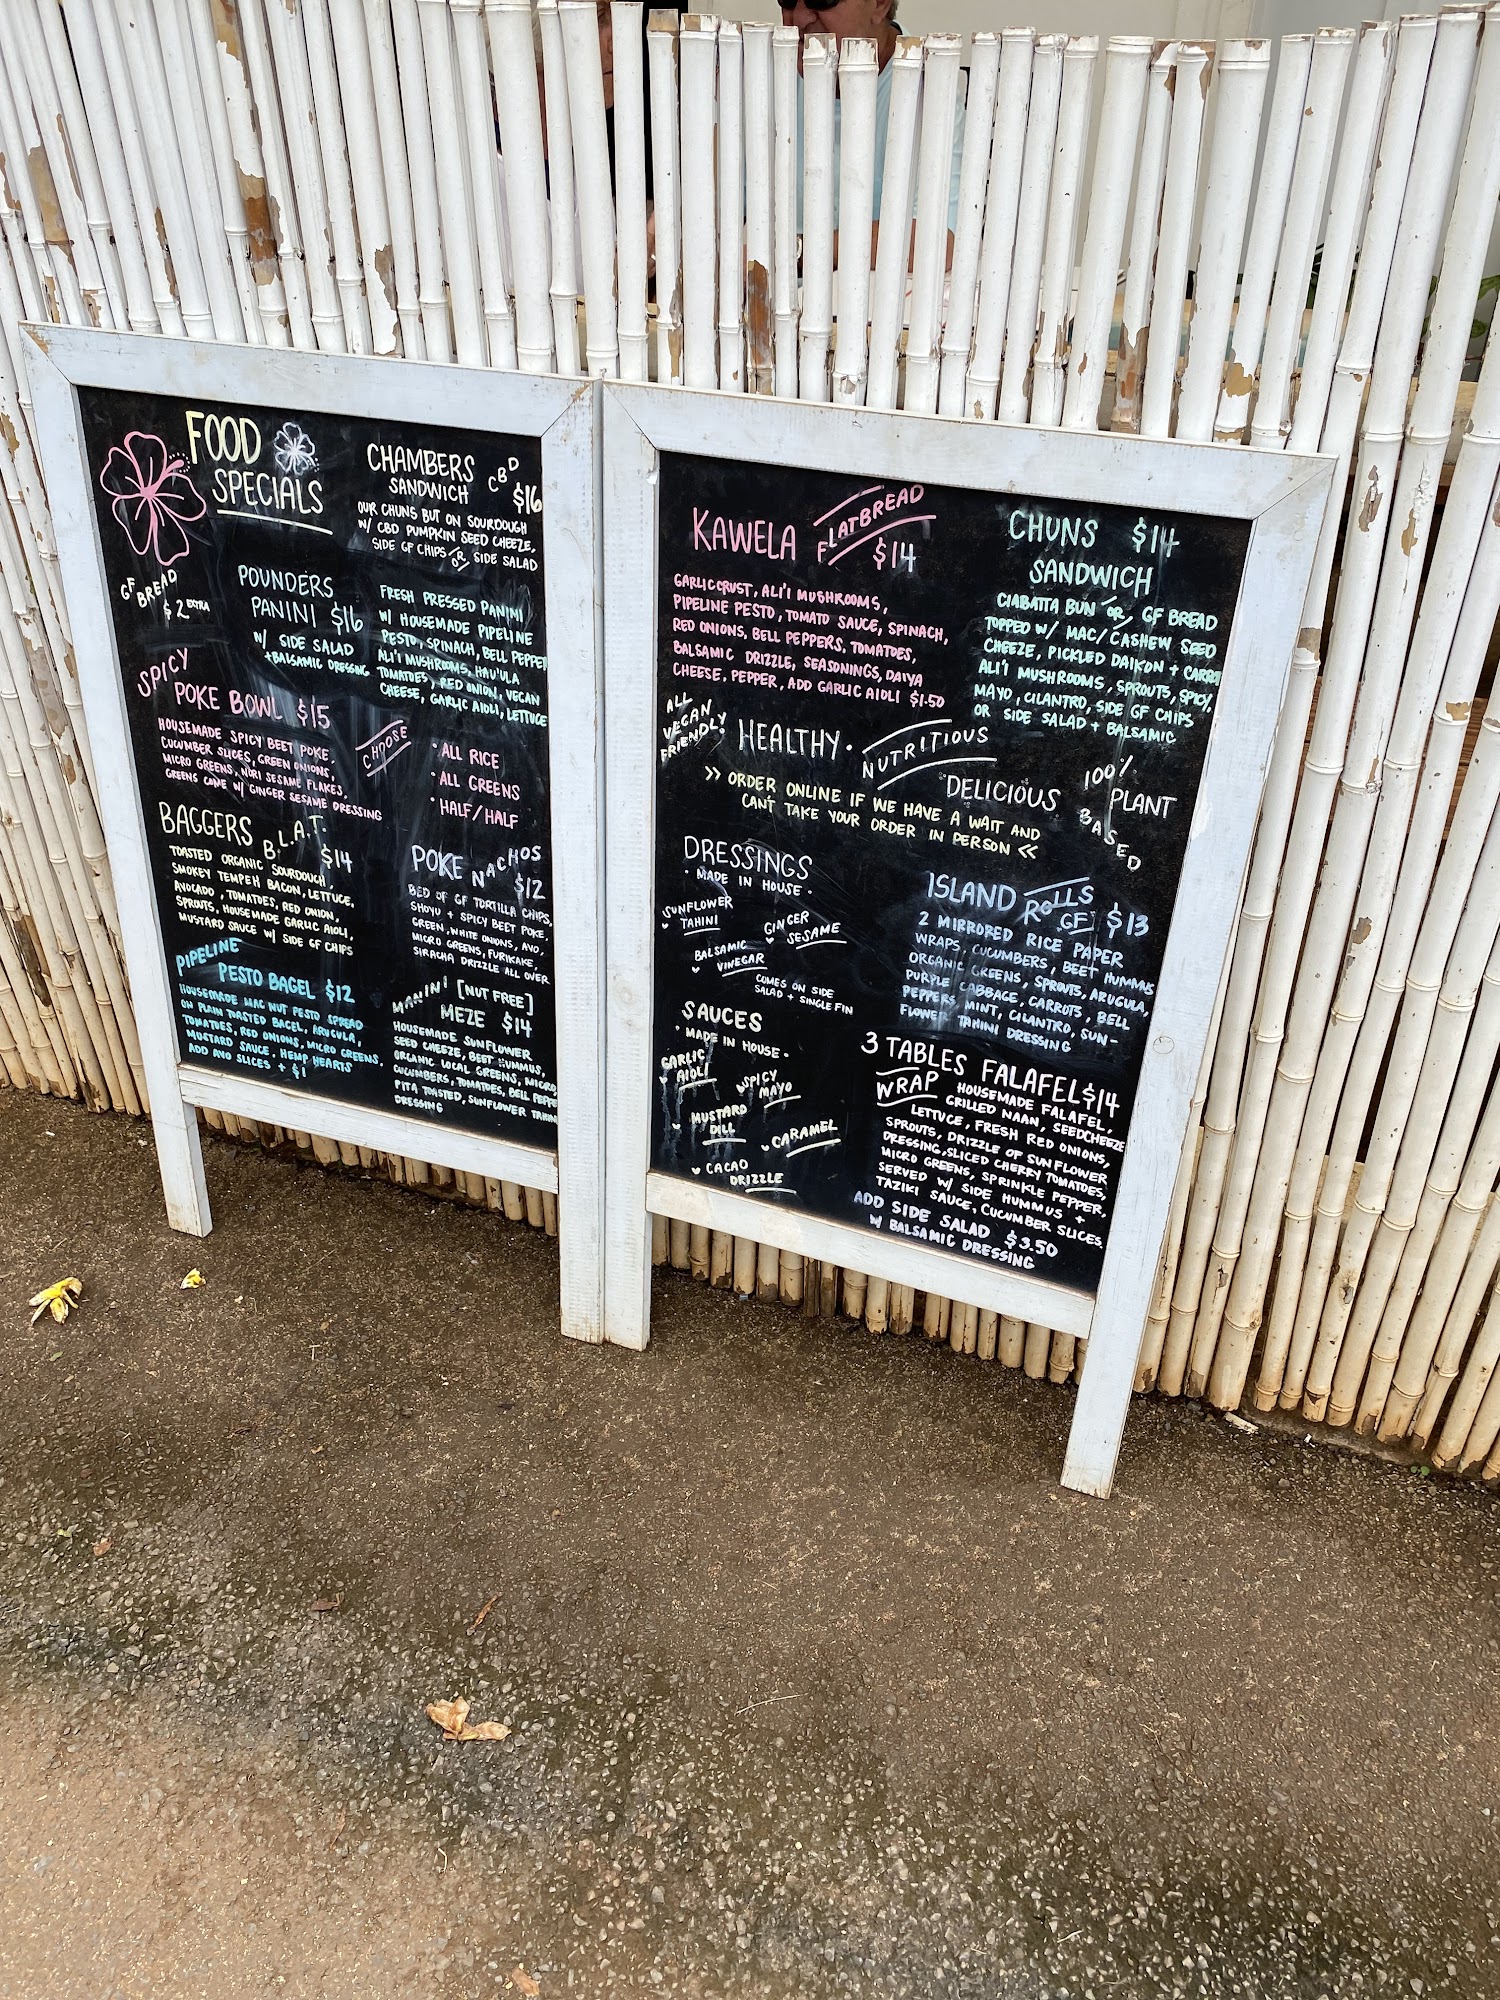 FOOD
SPECIALS
GF BREAD
$2 EXTRA
CHAMBERS CBD
SANDWICH $16
OUR CHUNS BUT ON SOURDOUGH
W/ CBD PUMPKIN SEED CHEEZE,
SIDE GF CHIPS OR SIDE SALAD
POUNDERS
PANINI $16
W/ SIDE SALAD
+BALSAMIC DRESSING
FRESH PRESSED PANINI
W/ HOUSEMADE PIPELINE
PESTO, SPINACH, BELL PEPPER
ALI'I MUSHROOMS, HAU'ULA
TOMATOES, RED ONION, VEGAN
CHEESE, GARLIC AIOLI, LETTUCE
SPICY
POKE BOWL $15
HOUSEMADE SPICY BEET POKE,
CUCUMBER SLICES, GREEN ONIONS,
MICRO GREENS, NORI SESAME FLAKES,
GREENS COME W/ GINGER SESAME DRESSING
CHOOSE
• ALL RICE
• ALL GREENS
• HALF/HALF
BAGGERS B.L.A.T.
$14
TOASTED ORGANIC SOURDOUGH,
SMOKEY TEMPEH BACON, LETTUCE,
AVOCADO, TOMATOES, RED ONION,
SPROUTS, HOUSEMADE GARLIC AIOLI,
MUSTARD SAUCE W/ SIDE GF CHIPS
POKE NACHOS
$12
BED OF GF TORTILLA CHIPS,
SHOYU + SPICY BEET POKE,
GREEN, WHITE ONIONS, AVO,
MICRO GREENS, FURIKAKE,
SIRACHA DRIZZLE ALL OVER
PIPELINE
PESTO BAGEL $12
HOUSEMADE MAC NUT PESTO SPREAD
ON PLAIN TOASTED BAGEL, ARUGULA,
TOMATOES, RED ONIONS, MICRO GREENS,
MUSTARD SAUCE, HEMP HEARTS
ADD AVO SLICES + $1
MANINI [NUT FREE]
MEZE $14
HOUSEMADE SUNFLOWER
SEED CHEEZE, BEET HUMMUS,
ORGANIC LOCAL GREENS, MICRO
CUCUMBERS, TOMATOES, BELL PEPPE
PITA TOASTED, SUNFLOWER TAHINI
DRESSING
KAWELA FLATBREAD
$14
GARLIC CRUST, ALI'I MUSHROOMS,
PIPELINE PESTO, TOMATO SAUCE, SPINACH,
RED ONIONS, BELL PEPPERS, TOMATOES,
BALSAMIC DRIZZLE, SEASONINGS, DAIYA
CHEESE, PEPPER, ADD GARLIC AIOLI $1.50
CHUNS $14
SANDWICH
CIABATTA BUN OR GF BREAD
TOPPED W/ MAC/CASHEW SEED
CHEEZE, PICKLED DAIKON + CARROT
ALI'I MUSHROOMS, SPROUTS, SPICY,
MAYO, CILANTRO, SIDE GF CHIPS
OR SIDE SALAD + BALSAMIC
ALL
VEGAN
FRIENDLY
HEALTHY • NUTRITIOUS
DELICIOUS
100%
PLANT
BASED
>> ORDER ONLINE IF WE HAVE A WAIT AND
CAN'T TAKE YOUR ORDER IN PERSON <<
DRESSINGS
• MADE IN HOUSE •
SUNFLOWER
TAHINI
GINGER
SESAME
BALSAMIC
VINEGAR
COMES ON SIDE
SALAD + SINGLE FIN
SAUCES
• MADE IN HOUSE •
GARLIC
AIOLI
SPICY
MAYO
MUSTARD
DILL
CARAMEL
CACAO
DRIZZLE
ISLAND ROLLS
GF $13
2 MIRRORED RICE PAPER
WRAPS, CUCUMBERS, BEET HUMMUS
ORGANIC GREENS, SPROUTS, ARUGULA,
PURPLE CABBAGE, CARROTS, BELL
PEPPERS MINT, CILANTRO, SUN-
FLOWER TAHINI DRESSING
3 TABLES FALAFEL $14
WRAP HOUSEMADE FALAFEL,
GRILLED NAAN, SEEDCHEEZE
LETTUCE, FRESH RED ONIONS,
SPROUTS, DRIZZLE OF SUNFLOWER
DRESSING, SLICED CHERRY TOMATOES,
MICRO GREENS, SPRINKLE PEPPER,
SERVED W/ SIDE HUMMUS +
TAZIKI SAUCE, CUCUMBER SLICES.
ADD SIDE SALAD $3.50
W/ BALSAMIC DRESSING